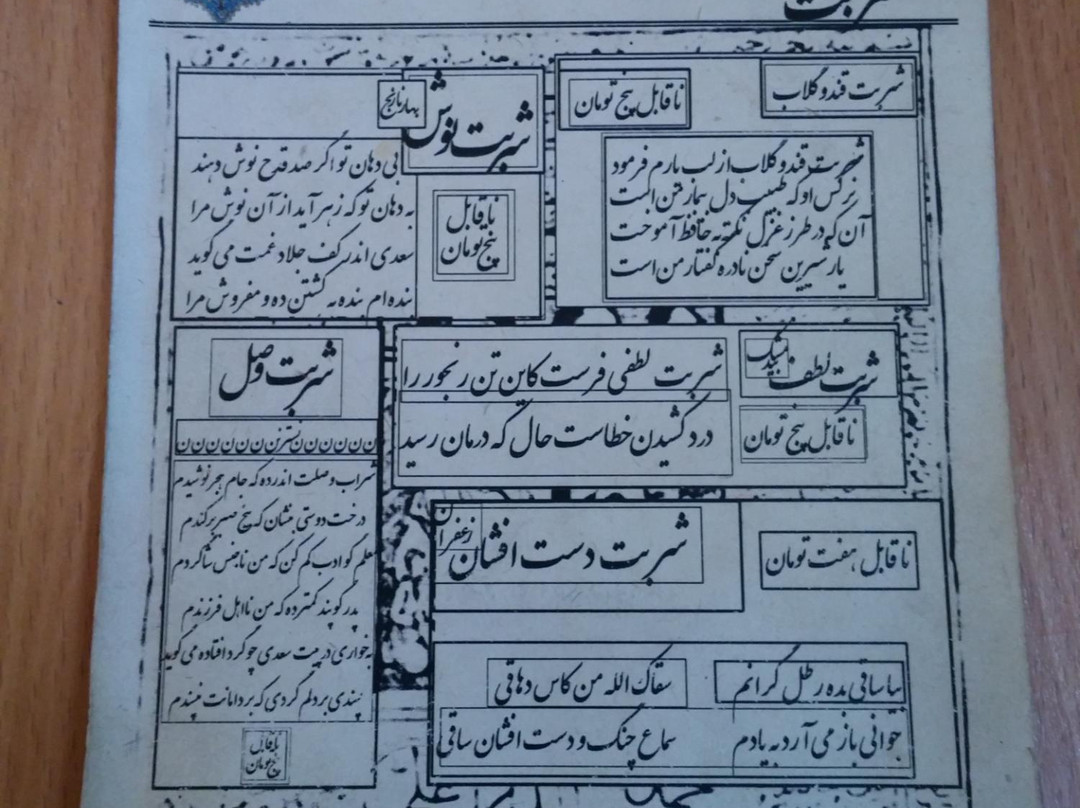 شربت
شربت قند و گلاب
ناقابل پنج تومان
شربت قند و گلاب از لب یارم فرمود
نرگس او که طبیب دل بیمار من است
آن که در طرز غزل نکته به حافظ آموخت
یار شیرین سخن نادره گفتار من است
شربت نوش
بهار نارنج
ناقابل
پنج تومان
بی دهان تو اگر صد قدح نوش دهند
به دهان تو که زهر آید از آن نوش مرا
سعدی اندر کف جلاد غمت می گوید
بنده ام بنده به کشتن ده و مفروش مرا
شربت لطف
بیدمشک
ناقابل پنج تومان
شربت لطفی فرست کاین تن رنجور را
درد کشیدن خطاست حال که درمان رسید
شربت وصل
نسترن ن ن ن ن ن ن
شراب وصلت اندر ده که جام هجر نوشیدم
درخت دوستی بنشان که بیخ صبر برکندم
معلم گو ادب کم کن که من ناجنس شاگردم
پدر گو پند کمتر ده که من نااهل فرزندم
به خواری در پیت سعدی چو گرد افتاده می گوید
پسندی بر دلم گردی که بر دامانت نپسندم
ناقابل
پنج تومان
شربت دست افشان
زعفران
ناقابل هفت تومان
بیا ساقی بده رطل گرانم
سقاک الله من کاس دهاقی
جوانی باز می آرد به یادم
سماع چنگ و دست افشان ساقی